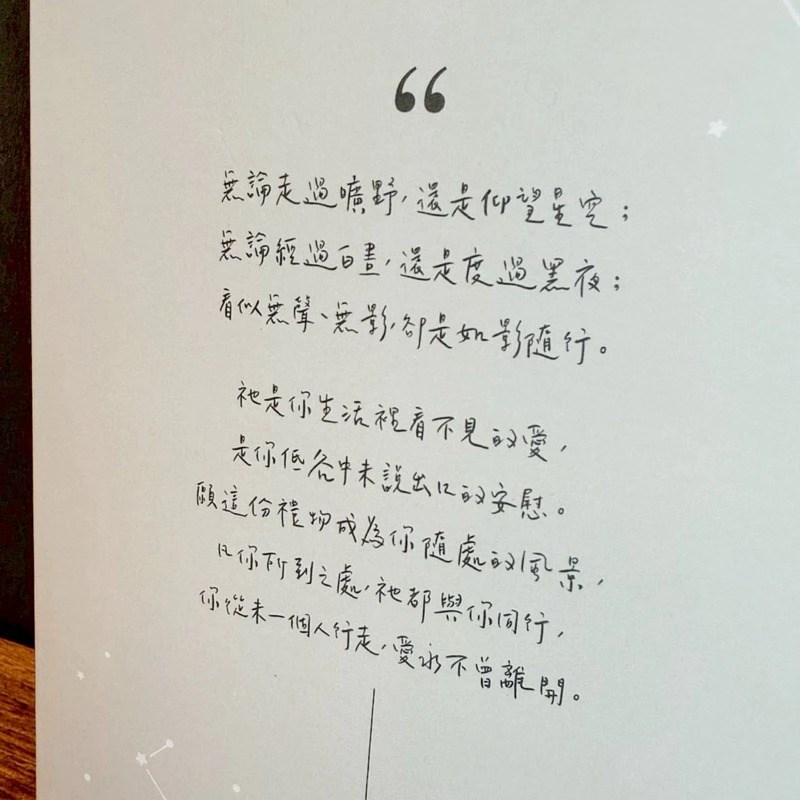 “
無論走過曠野,還是仰望星空；
無論經過白晝,還是度過黑夜；
看似無聲、無影,卻是如影隨行。
祂是你生活裡看不見的愛,
是你低谷中未說出口的安慰。
願這份禮物成為你隨處的風景,
凡你所到之處,祂都與你同行,
你從未一個人行走,愛永不曾離開。